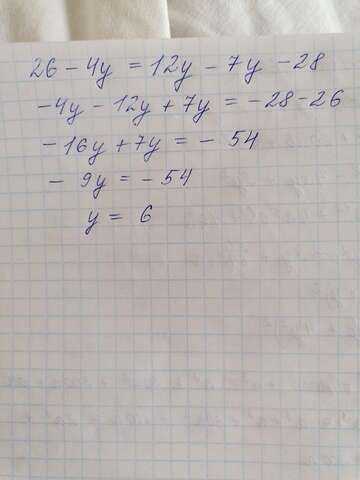 26 - 4y = 12y - 7y - 28
-4y - 12y + 7y = -28 - 26
-16y + 7y = - 54
- 9y = - 54
y = 6